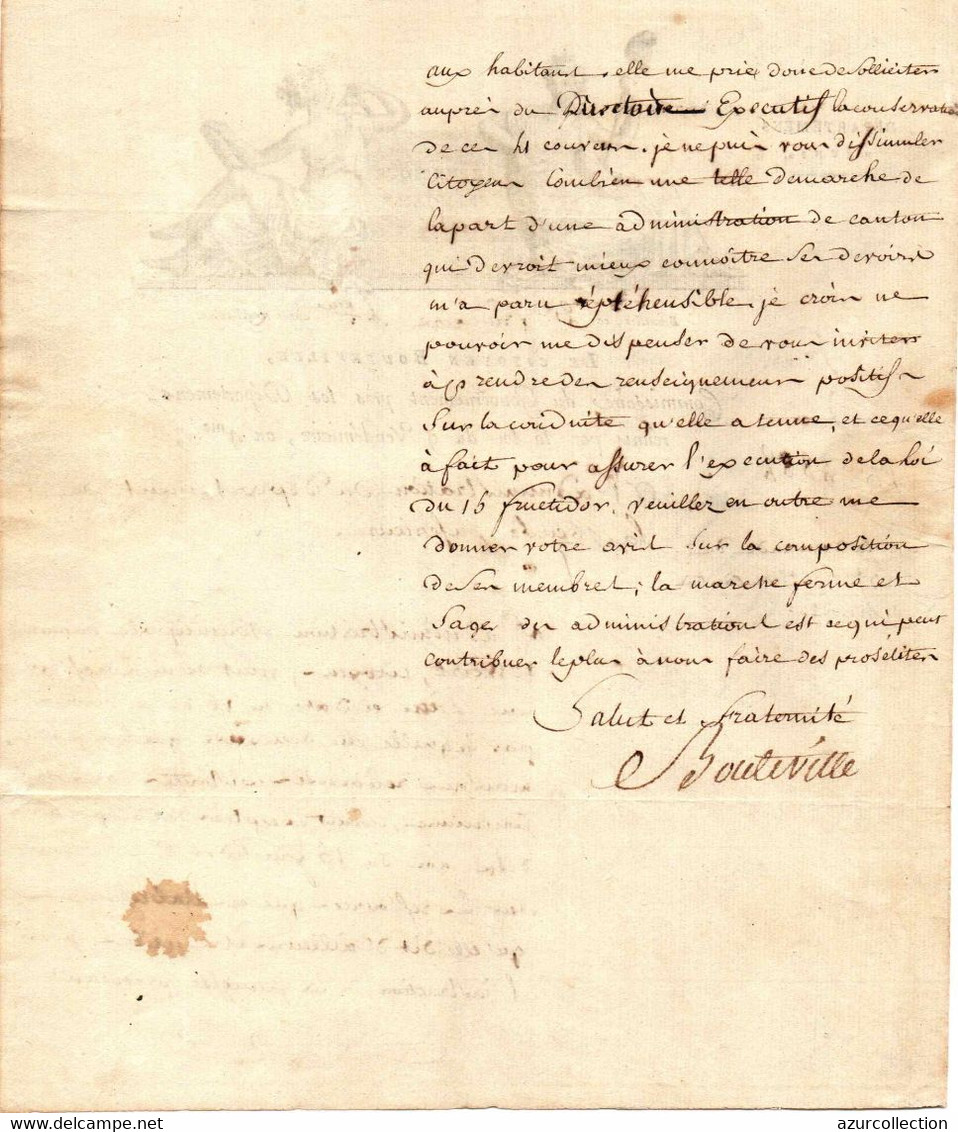 aux habitans. elle me prie donc de solliciter
auprès du Directoire Executif la conservation
de ces 4 couvens. je ne puis vous dissimuler
Citoyens Combien une telle demarche de
la part d'une administration de canton
qui devroit mieux connoître ses devoirs
m'a paru répréhensible, je crois ne
pouvoir me dispenser de vous inviter
à prendre des renseignemens positifs
Sur la conduite qu'elle a tenue, et ce qu'elle
à fait pour assurer l'execution de la Loi
du 15 fructidor, veuillez en outre me
donner votre avis sur la composition
de ses membres; la marche ferme et
sages des administrations est ce qui peut
contribuer le plus à nous faire des proselites
Salut et fraternité
Bouteville
azurcollection